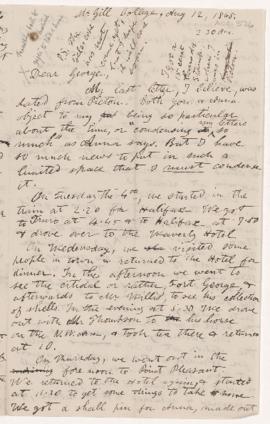 McGill College, Aug 12, 1868.
2.30
Dear George,
My last letter, I believe, was
dated from Pictou. Both you & Anna
object to my being so particular
about the time, or condensing my letters so
much as Anna says. But I have
so much news to put in such a
limited space that I must condense
it.
On Tuesday the 4th, we started in the
train at 2.20 for Halifax. We got
to Truro at 4.40 & to Halifax at 7.50
& drove over to the Waverly Hotel.
On Wednesday, we visited some
people in town & returned to the Hotel for
dinner. In the afternoon we went to
see the citidal or rather, Fort George, &
afterwards to Mr Willis', to see his collection
of shells. In the evening at 5.30 we drove
out with Thompson to his house
on the & took tea there & returned
at 10.
On Thursday, we went out in the
fore noon to Point Pleasant.
We returned to the Hotel & started
at 1.20 to get some things to take home
We got a shell pin for Anna, made out